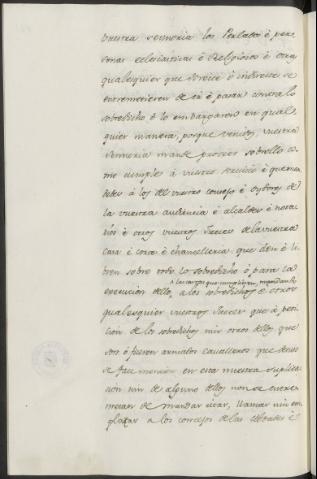 vuestra señoria los Perlados é per-
sonas eclesiasticas é Religiosos é otros
qualesquier que direte é indirete se
entremetieren de ir é pasar contra lo
sobredicho é lo embargaren en qual-
quier manera, porque venido, vuestra
Señoria mande proveer sobrello co-
mo cumple á vuestro servicio é que man-
dedes á los del vuestro consejo é oydores de
la vuestra audiencia é alcaldes é nota-
rios é otros vuestros Jueces de la vuestra
casa é corte é chancilleria que den é li-
bren sobre todo lo sobredicho é para la
execucion dello,
á los sobredichos é otros
qualesquier vuestros Jueces que á peti-
cion de los sobredichos nin otros dellos que
son ó fueren armados cavalleros que desuso
se face mencion en esta nuestra suplica-
cion nin de alguno dellos non se entre-
metan de mandar citar, llamar nin em-
plazar á los concejos de las cibdades é